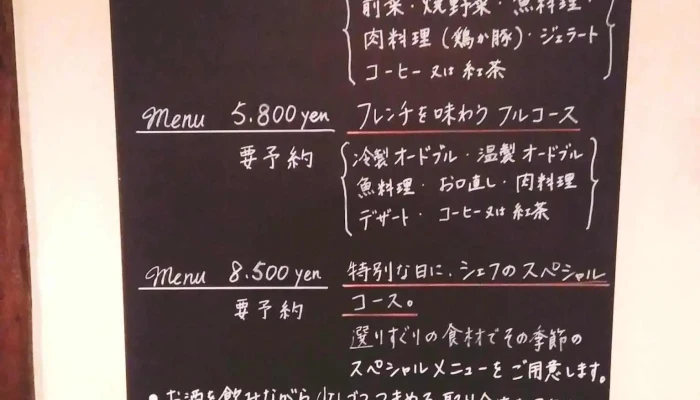 前菜・焼野菜・魚料理・
肉料理(鶏か豚)・ジェラート
コーヒー又は紅茶
Menu 5.800yen フレンチを味わう フルコース
要予約
冷製オードブル・温製オードブル
魚料理・お口直し・肉料理
デザート・コーヒー又は紅茶
Menu 8.500yen 特別な日に、シェフのスペシャル
要予約 コース。
選りすぐりの食材でその季節の
スペシャルメニューをご用意します。
●お酒を飲みながら